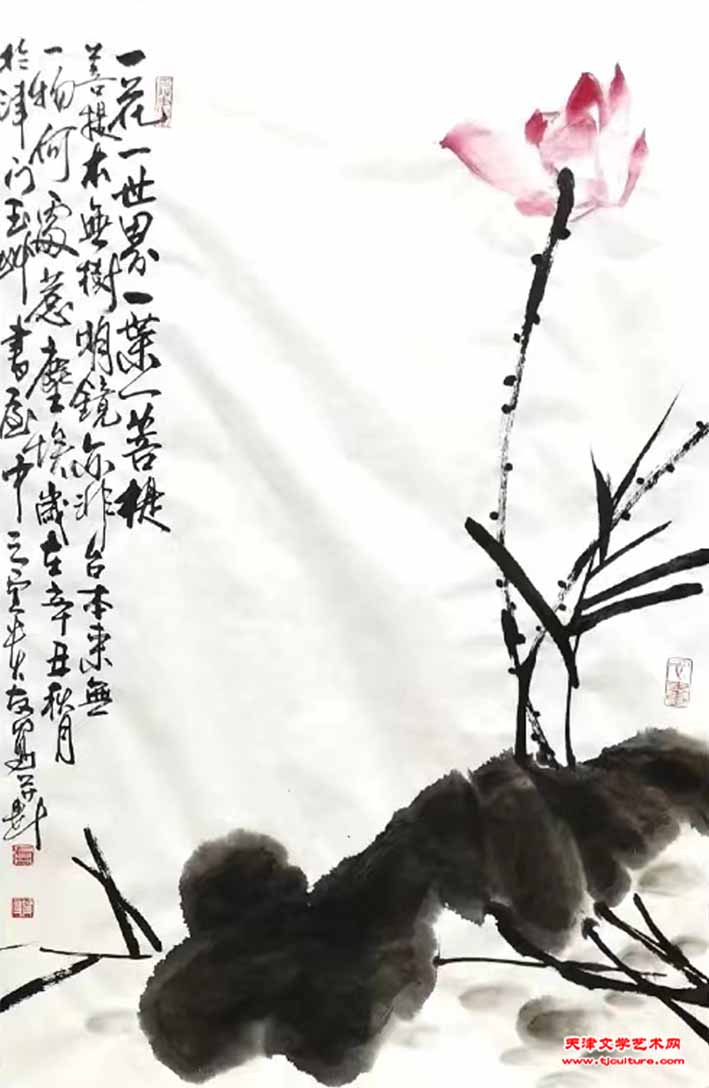 一花一世界一葉一菩提
菩提本無樹明鏡亦非台本来無
一物何處惹塵埃歲在辛丑秋月
於津门玉書屋中
天津文学艺术网
www.tjculture.com